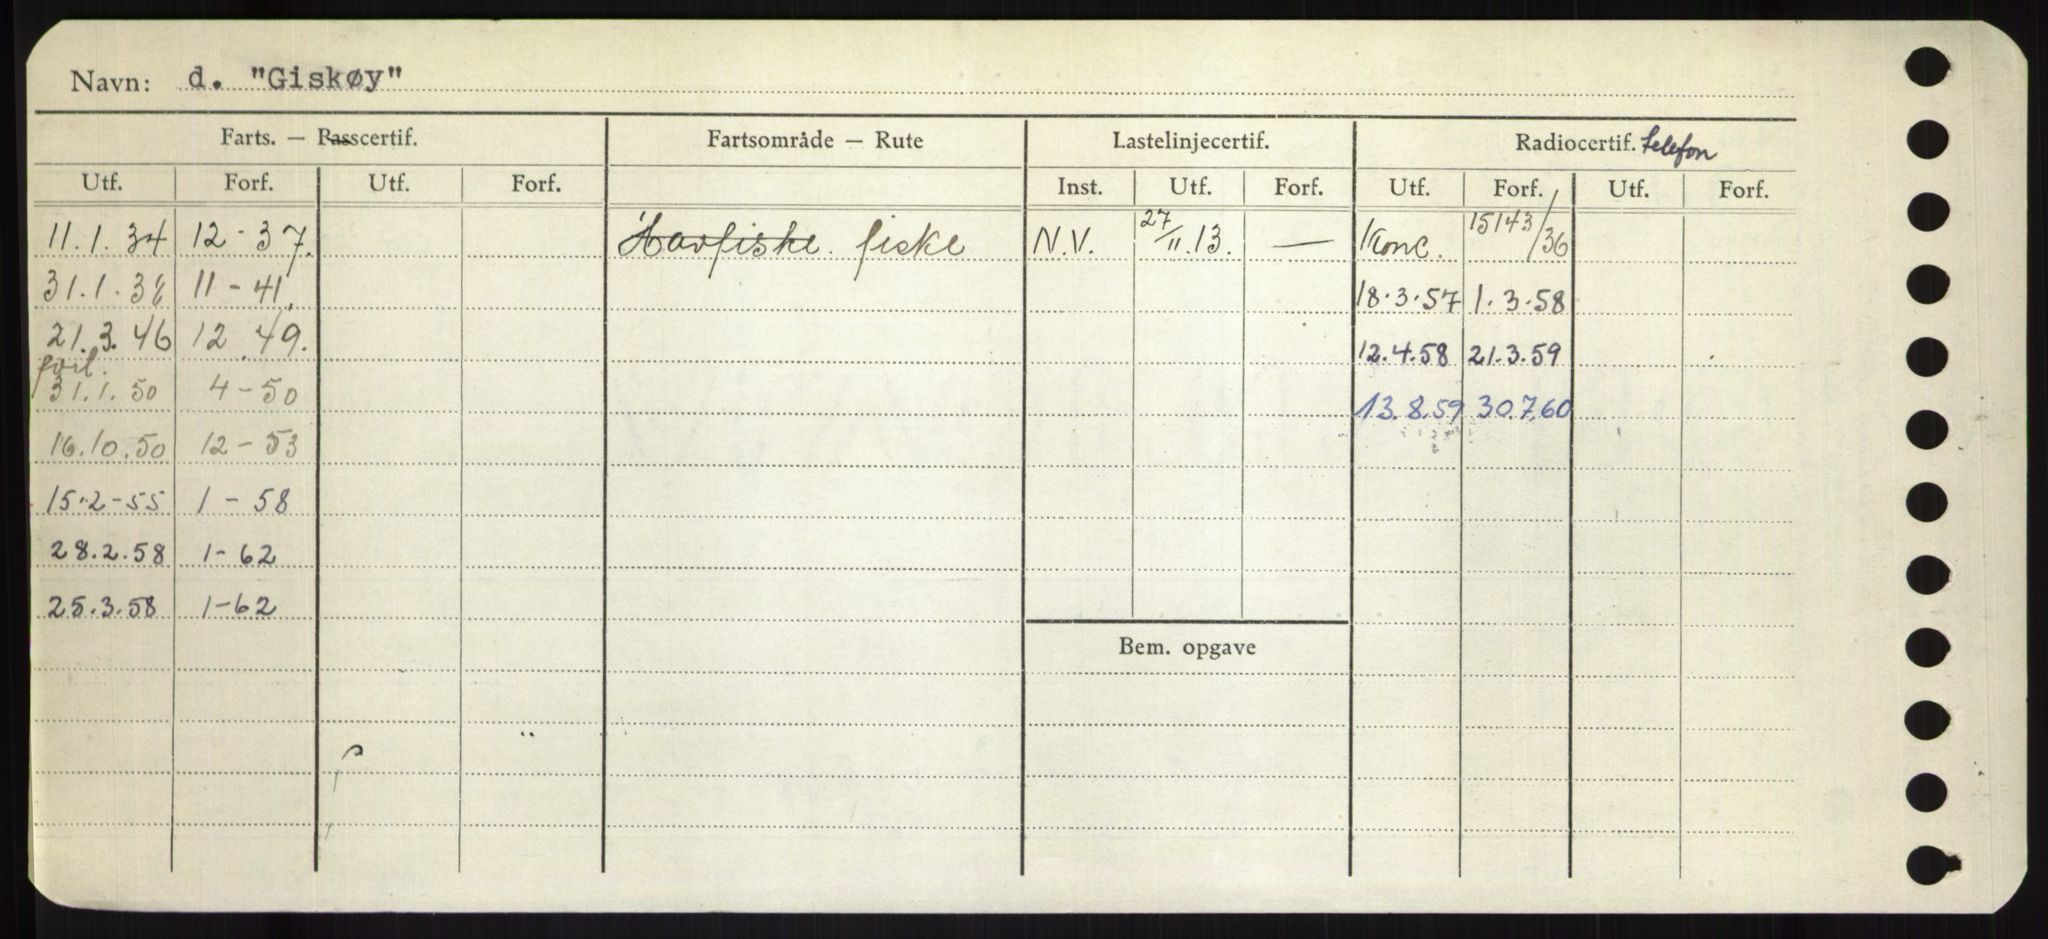 Navn: d. "Giskøy"
Farts. — Passcertif. Fartsområde — Rute Lastelinjecertif. Radiocertif. telefon
Utf. Forf. Utf. Forf. Inst. Utf. Forf. Utf. Forf. Utf. Forf.
11.1.34 12-37. Havfiske. fiske N.V. 27/11.13. — Konc. 15143/36
31.1.38 11-41. 18.3.57 1.3.58
21.3.46 12.49. 12.4.58 21.3.59
forl.
31.1.50 4-50 13.8.59 30.7.60
16.10.50 12-53
15.2-55 1-58
28.2.58 1-62
25.3.58 1-62
Bem. opgave